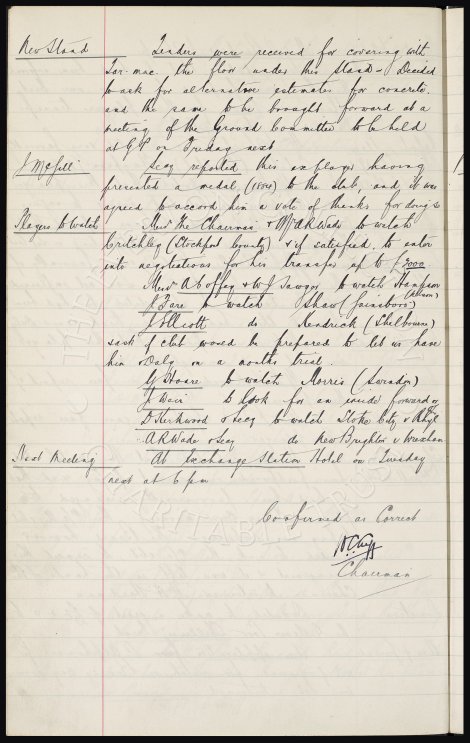 New Stand Tenders were received for covering with
Tar-mac the floor under this Stand - Decided
to ask for alternative estimates for concrete
and the same to be brought forward at a
meeting of the Ground Committee to be held
at G.P. on Friday next
J McGill Secy reported this explayer having
presented a medal to the club, and it was
agreed to accord him a vote of thanks for doing so
Players to watch Messrs The Chairman & Mr A R Wade to watch
Critchley (Stockport County) & if satisfied, to enter
into negotiations for his transfer up to £3000
Messrs A Coffey & W J Sawyer to watch Hampson
(Nelson)
J Fare to watch Shaw (Gainsboro)
J Elliott do Kendrick (Shelbourne)
& ask if club would be prepared to let us have
him & Daly on a months trial.
G Hoare to watch Morris (Swindon)
J Weir to look for an inside forward
D Kirkwood & Secy to watch Stoke City v Rhyl
A R Wade & Secy do New Brighton v Wrexham
Next Meeting At Exchange Station Hotel on Tuesday
next at 6 pm
Confirmed as Correct
Chairman
CHARITABLE TRUST